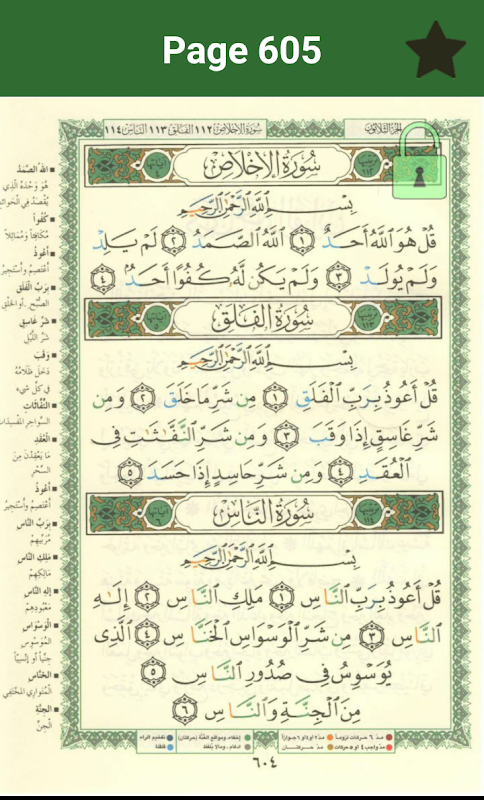 Page 605
سورة الإخلاص ١١٢ الفلق ١١٣ الناس ١١٤
الجزء الثلاثون
سُورَةُ الإِخْلَاصِ
بِسْمِ اللَّهِ الرَّحْمَٰنِ الرَّحِيمِ
قُلْ هُوَ اللَّهُ أَحَدٌ ١ اللَّهُ الصَّمَدُ ٢ لَمْ يَلِدْ
وَلَمْ يُولَدْ ٣ وَلَمْ يَكُن لَّهُ كُفُوًا أَحَدٌ ٤
سُورَةُ الفَلَقِ
بِسْمِ اللَّهِ الرَّحْمَٰنِ الرَّحِيمِ
قُلْ أَعُوذُ بِرَبِّ الْفَلَقِ ١ مِن شَرِّ مَا خَلَقَ ٢ وَمِن
شَرِّ غَاسِقٍ إِذَا وَقَبَ ٣ وَمِن شَرِّ النَّفَّٰثَٰتِ فِى
الْعُقَدِ ٤ وَمِن شَرِّ حَاسِدٍ إِذَا حَسَدَ ٥
سُورَةُ النَّاسِ
بِسْمِ اللَّهِ الرَّحْمَٰنِ الرَّحِيمِ
قُلْ أَعُوذُ بِرَبِّ النَّاسِ ١ مَلِكِ النَّاسِ ٢ إِلَٰهِ
النَّاسِ ٣ مِن شَرِّ الْوَسْوَاسِ الْخَنَّاسِ ٤ الَّذِى
يُوَسْوِسُ فِى صُدُورِ النَّاسِ ٥
مِنَ الْجِنَّةِ وَالنَّاسِ ٦
اللهُ الصَّمَدُ
هُوَ وَحْدَهُ الَّذِي
كُفُوًا
مُكَافِئًا وَمُمَاثِلًا
أَعُوذُ
أَعْتَصِمُ وَأَسْتَجِيرُ
بِرَبِّ الْفَلَقِ
شَرِّ غَاسِقٍ
شَرِّ اللَّيْلِ
وَقَبَ
دَخَلَ ظَلَامُهُ
فِي كُلِّ شَيْءٍ
النَّفَّاثَاتِ
السَّوَاحِرِ الْمُفْسِدَات
الْعُقَدِ
مَا يَعْقِدْنَ مِنَ
السِّحْرِ
أَعُوذُ
أَعْتَصِمُ وَأَسْتَجِيرُ
بِرَبِّ النَّاسِ
مُرَبِّيهِمْ
مَلِكِ النَّاسِ
مَالِكِهِمْ
إِلَهِ النَّاسِ
مَعْبُودِهِمْ
الْوَسْوَاسِ
الْمُوَسْوِسِ
جِنِّيًّا أَوْ إِنْسِيًّا
الْخَنَّاسِ
الْمُتَوَارِي الْمُخْتَفِي
الْجِنَّةِ
الْجِنِّ
مدّ ٦ حركات لزوماً
مدّ ٢ أو ٤ أو ٦ جوازاً
إخفاء، ومواقع الغُنَّة (حركتان)
تفخيم الراء
مدّ واجب ٤ أو ٥ حركات
مدّ حركتان
إدغام، وما لا يُلفظ
قلقلة
٦٠٤